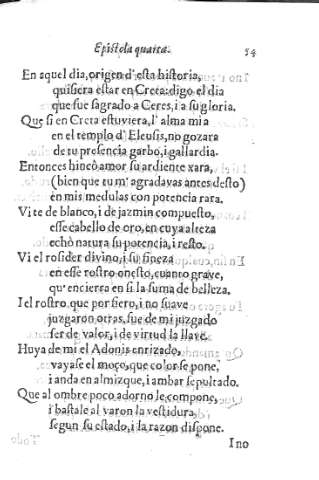 Epistola quarta. 54
En aquel dia, origen d'esta historia,
quisiera estar en Creta: digo el dia
que fue sagrado a Ceres, i a su gloria.
Que si en Creta estuviera, l'alma mia
en el templo d'Eleusis, no gozara
de tu presencia garbo, i gallardia.
Entonces hincò amor su ardiente xara,
(bien que tu m'agradavas antes desto)
en mis medulas con potencia rara.
Vite de blanco, i de jazmin compuesto,
esse cabello de oro, en cuya alteza
echò natura su potencia, i resto.
Vi el rosider divino, i su fineza
en esse rostro onesto, cuanto grave,
qu'encierra en si la suma de belleza.
I el rostro que por fiero, i no suave
juzgaron otras, fue de mi juzgado
ser de valor, i de virtud la llave.
Huya de mi el Adonis enrizado,
vayase el moço, que color se pone,
i anda en almizque, i ambar sepultado.
Que al ombre poco adorno le compone,
i bastale al varon la vestidura,
segun su estado, i la razon dispone.
I no